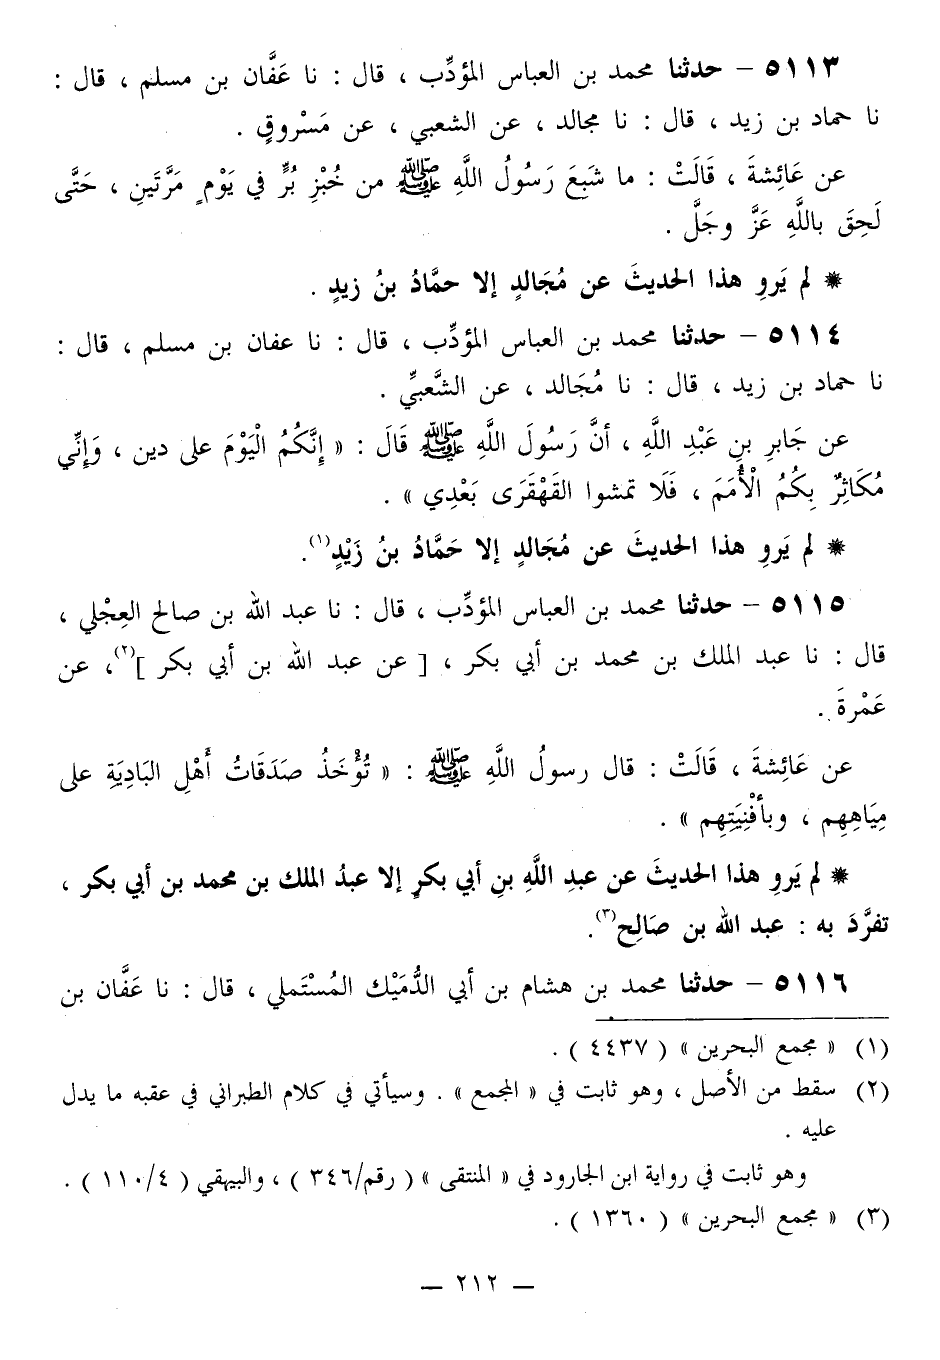 ٥١١٣ – حدثنا محمد بن العباس المؤدِّب ، قال : نا عَفَّان بن مسلم ، قال :
نا حماد بن زيد ، قال : نا مجالد ، عن الشعبي ، عن مَسْروقٍ .
عن عَائِشةَ ، قَالَتْ : ما شَبِعَ رَسُولُ اللَّهِ ﷺ من خُبْزِ بُرٍّ في يَوْمٍ مَرَّتَينِ ، حَتَّى
لَحِقَ باللَّهِ عَزَّ وجَلَّ .
* لم يَروِ هذا الحديثَ عن مُجَالدٍ إلا حمَّادُ بنُ زيدٍ .
٥١١٤ – حدثنا محمد بن العباس المؤدِّب ، قال : نا عفان بن مسلم ، قال :
نا حماد بن زيد ، قال : نا مُجَالد ، عن الشَّعبيِّ .
عن جَابرِ بنِ عَبْدِ اللَّهِ ، أنَّ رَسُولَ اللَّهِ ﷺ قَالَ : « إِنَّكُمُ الْيَوْمَ على دين ، وَإِنِّي
مُكَاثِرٌ بِكُمُ الْأُمَمَ ، فَلَا تمشوا القَهْقَرَى بَعْدِي » .
* لم يَروِ هذا الحديثَ عن مُجَالدٍ إلا حَمَّادُ بنُ زَيْدٍ(١).
٥١١٥ – حدثنا محمد بن العباس المؤدِّب ، قال : نا عبد الله بن صالح العِجْلي ،
قال : نا عبد الملك بن محمد بن أبي بكر ، [ عن عبد الله بن أبي بكر ](٢)، عن
عَمْرةَ .
عن عَائِشةَ ، قَالَتْ : قال رسولُ اللَّهِ ﷺ : « تُؤْخَذُ صَدَقَاتُ أَهْلِ البَادِيَةِ على
مِيَاهِهِم ، وبأَفْنِيَتِهِم » .
* لم يَروِ هذا الحديثَ عن عبدِ اللَّهِ بنِ أبي بكرٍ إلا عبدُ الملك بن محمد بن أبي بكر ،
تفرَّدَ به : عبد الله بن صَالِح(٣).
٥١١٦ – حدثنا محمد بن هشام بن أبي الدُّمَيْك المُسْتَملي ، قال : نا عَفَّان بن
(١) « مجمع البحرين » ( ٤٤٣٧ ) .
(٢) سقط من الأصل ، وهو ثابت في « المجمع » . وسيأتي في كلام الطبراني في عقبه ما يدل
عليه .
وهو ثابت في رواية ابن الجارود في « المنتقى » ( رقم/٣٤٦ ) ، والبيهقي ( ٤/١١٠ ) .
(٣) « مجمع البحرين » ( ١٣٦٠ ) .
— ٢١٢ —